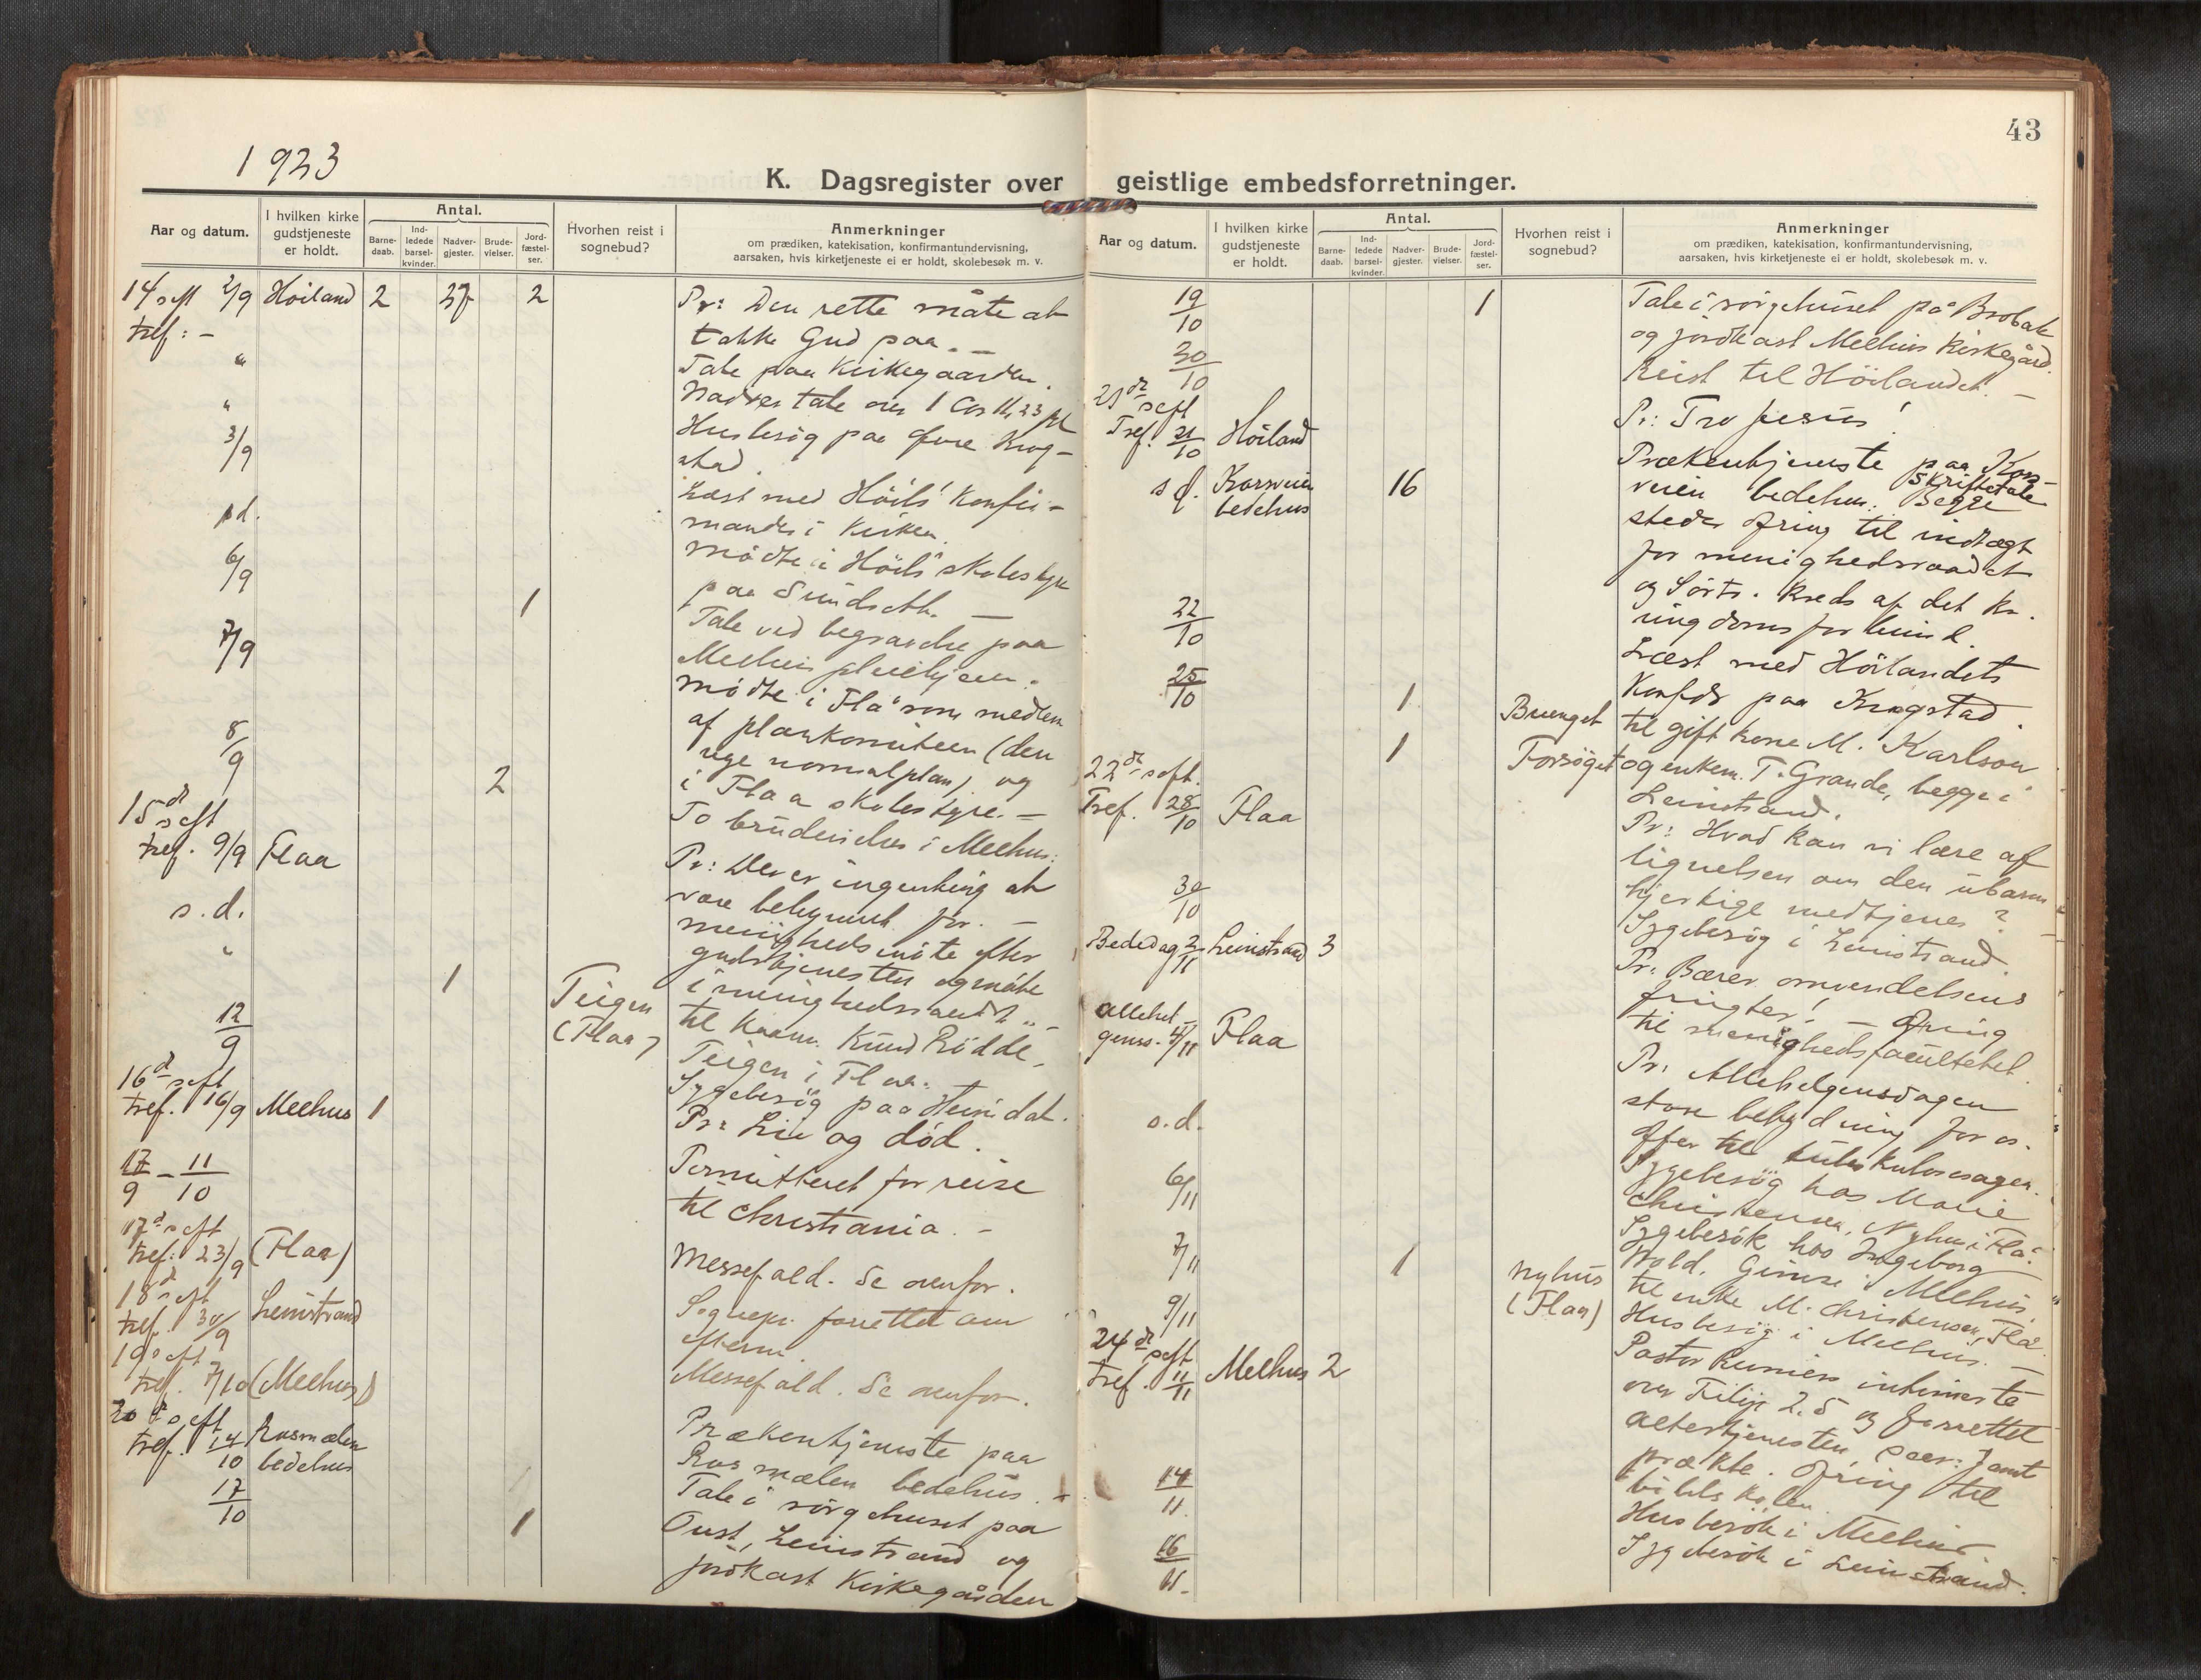 1923
43
K. Dagsregister over geistlige embedsforretninger.
Aar og datum.
I hvilken kirke gudstjeneste er holdt.
Antal.
Barne-daab.
Ind-ledede barsel-kvinder.
Nadver-gjester.
Brude-vielser.
Jord-fæstel-ser.
Hvorhen reist i sognebud?
Anmerkninger
om prædiken, katekisation, konfirmantundervisning,
aarsaken, hvis kirketjeneste ei er holdt, skolebesøk m. v.
14 s eft 2/9 Höiland 2 37 2 Pr: Den rette måte at
tref: - takke Gud paa. -
" Tale paa Kirkegaarden.
" Nadver tale over 1 Cor 11, 23 ff
3/9 Husbesög paa Övre Krog-
stad.
s d. Læst med Höil's Konfir-
mander i Kirken.
6/9 Mödte i Höil's skolestyre
paa Sundseth. -
7/9 1 Tale ved begravelse paa
Melhus pleiehjem.
Mödte i Flå som medlem
af plankomiteen (den
8/9 nye normalplan) og
i Flaa skolestyre. -
2 To brudevielser i Melhus.
15 d s eft
tref. 9/9 Flaa Pr: Der er ingenting at
være bekymret for. -
s. d. Menighedsmöte efter
gudstjenesten og möte
" i menighedsraadet. -
1 Teigen (Flaa) til Kaarm. Knud Rödde,
Teigen i Flaa.
12/9 Sygebesög paa Heimdal.
16 d s eft
tref. 16/9 Melhus 1 Pr: Liv og död.
17/9 - 11/10 Permitteret for reise
til Christiania. -
17 d s eft
tref: 23/9 (Flaa) Messefald. Se ovenfor.
18 d s eft
tref. 30/9 Leinstrand Sognepr. forrettet om
efterm.
19 s eft
tref. 7/10 (Melhus) Messefald. Se ovenfor.
20 d s eft
tref. 14/10 Rosmælen bedehus Prækentjeneste paa
Rosmælen bedehus. -
17/10 1 Tale i sörgehuset paa
Oust, Leinstrand og
jordkast Kirkegården
Aar og datum.
I hvilken kirke gudstjeneste er holdt.
Antal.
Barne-daab.
Ind-ledede barsel-kvinder.
Nadver-gjester.
Brude-vielser.
Jord-fæstel-ser.
Hvorhen reist i sognebud?
Anmerkninger
om prædiken, katekisation, konfirmantundervisning,
aarsaken, hvis kirketjeneste ei er holdt, skolebesøk m. v.
19/10 1 Tale i sörgehuset på Brobak
og jordkast Melhus Kirkegård.
20/10 Reist til Höilandet. -
21 de s eft
Tref. 21/10 Höiland Pr: Tro Jesus!
s d. Korsveien bedehus 16 Prækentjeneste paa Kors-
veien bedehus. Skriftetale Begge
steder ofring til indtægt
for menighedsraadet
og Sörtr. Kreds af det Kr.
ungdomsforbund.
22/10 Læst med Höilandets
Konfdr paa Krogstad.
25/10 1 Buenget til gift kone M. Karlson
1 Forsöget og enkem. T. Grande, begge i
Leinstrand.
22 de s eft.
Tref. 28/10 Flaa Pr: Hvad kan vi lære af
lignelsen om den ubarm
hjertige medtjener?
30/10 Sygebesög i Leinstrand.
Bededag 2/11 Leinstrand 3 Pr: Bærer omvendelsens
frugter! - Ofring
til menighedsfacultetet.
Allehel-
genss. 4/11 Flaa Pr: Allehelgensdagens
store betydning for os.
Offer til tuberkulosesagen.
s. d. Sygebesög hos Marie
Christensen, Nyhus i Flå.
6/11 Sygebesök hos Ingeborg
Wold, Gimse i Melhus.
7/11 1 Nyhus (Flaa) til enke M. Christensen, Flå.
9/11 Husbesög i Melhus. -
24 de s eft
tref. 11/11 Melhus 2 Pastor intimerte
over Filip. 2.5 og forrettet
altertjenesten, samt
prækte. Ofring til
bibelskolen.
14/11 Husbesök i Melhus.
16/11. Sygebesök i Leinstrand.